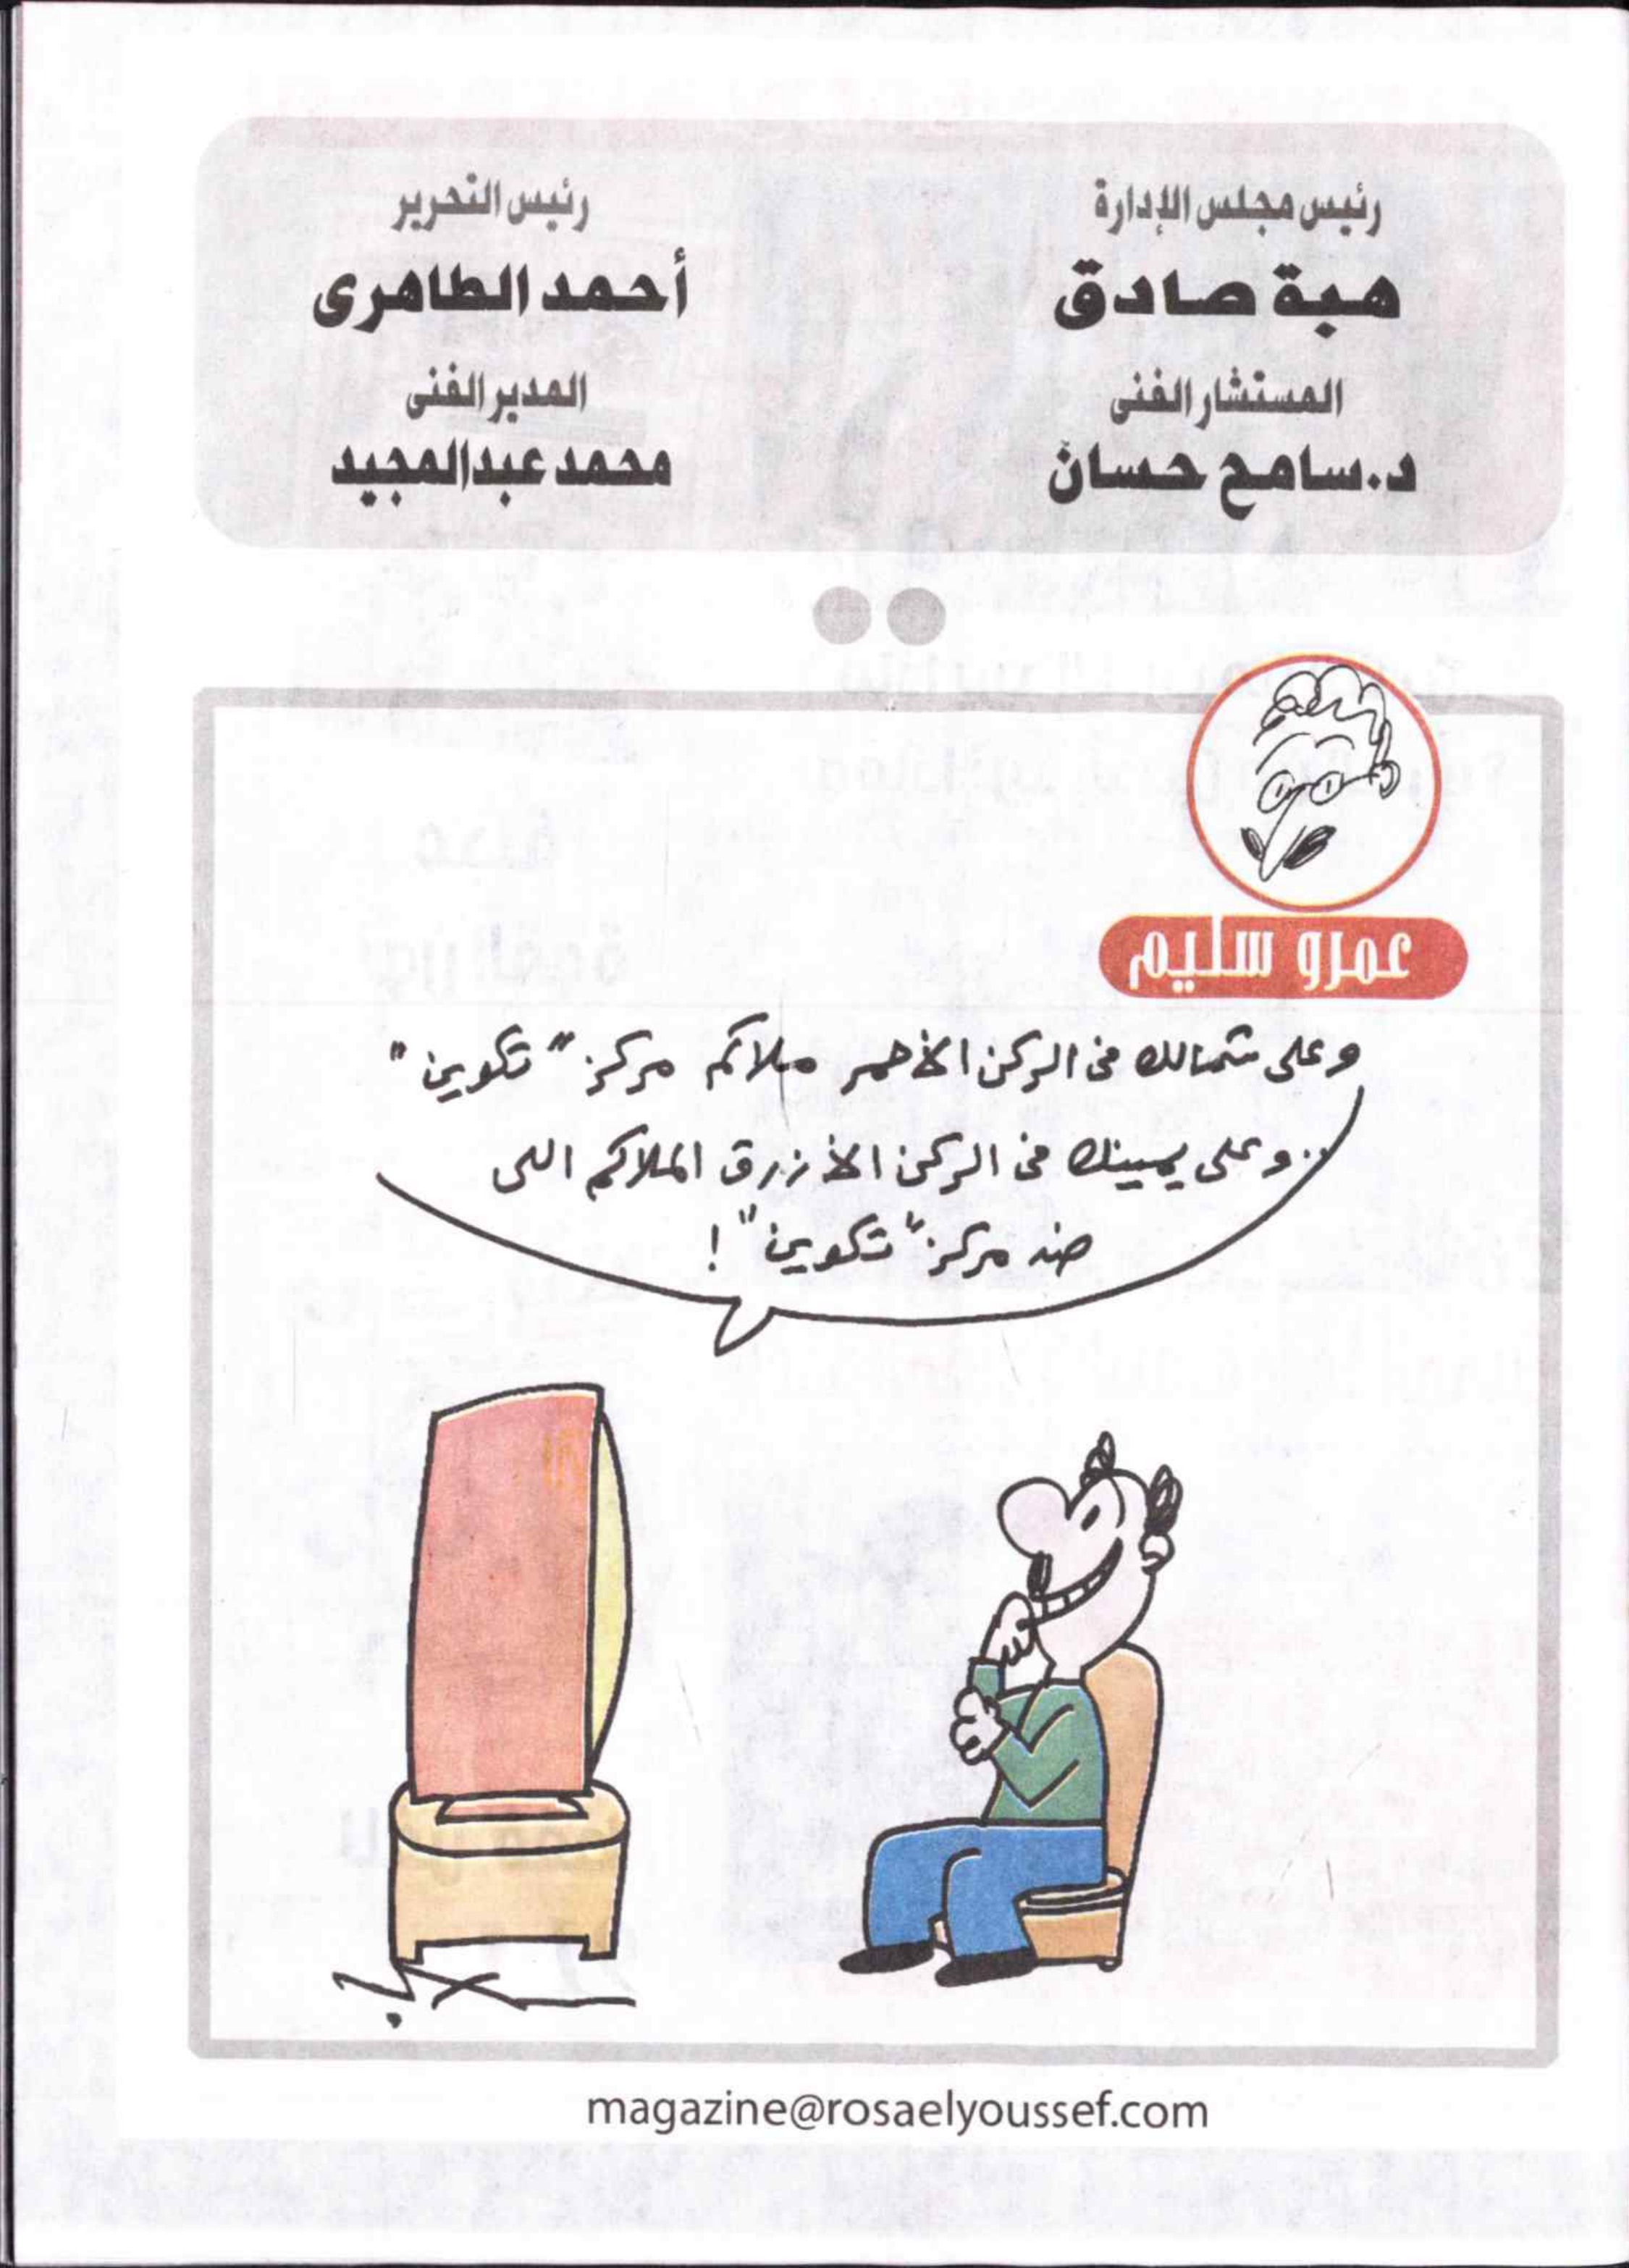 رئيس مجلس الإدارة
هبة صادق
المستشار الفنى
د.سامح حسان
رئيس التحرير
أحمد الطاهرى
المدير الفنى
محمد عبدالمجيد
عمرو سليم
وعلى شمالك فى الركن الأحمر ملاكم مركز "تكوين"
..وعلى يمينك فى الركن الأزرق الملاكم اللى
ضد مركز "تكوين"!
magazine@rosaelyoussef.com